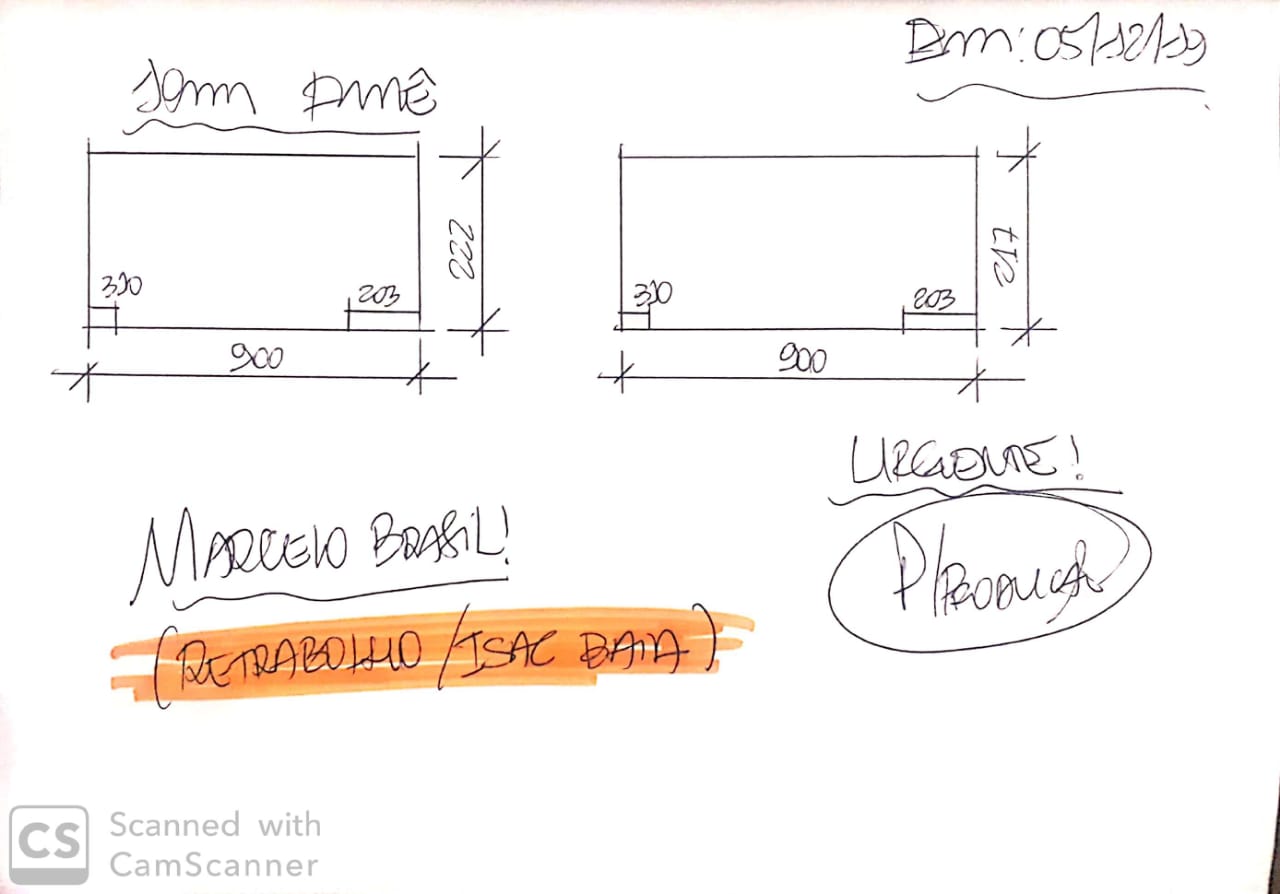 Em: 05/12/19
10mm
222
310
203
900
217
310
203
900
URGENTE!
P/PRODUÇÃO
MARCELO BRASIL!
(RETRABALHO/ISAC BAIA)
CS Scanned with
CamScanner